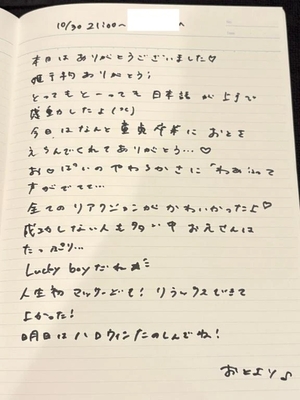 10/30 21:00〜
本日はありがとうございました♡
姫予約ありがとう!
とってもとーっても日本語が上手で
感動したよ(°̥̥C)
今日はなんと童貞卒業におとを
えらんでくれてありがとう…♡
おっぱいのやわらかさに「わぁ」って
声がでてて…
全てのリアクションがかわいかったよ♡
成功しない人も多い中 お兄さんは
たっぷり…
Lucky boyだね
人生初マックどど! リラックスできて
よかった!
明日はハロウィンたのしんでね!
おとより♪